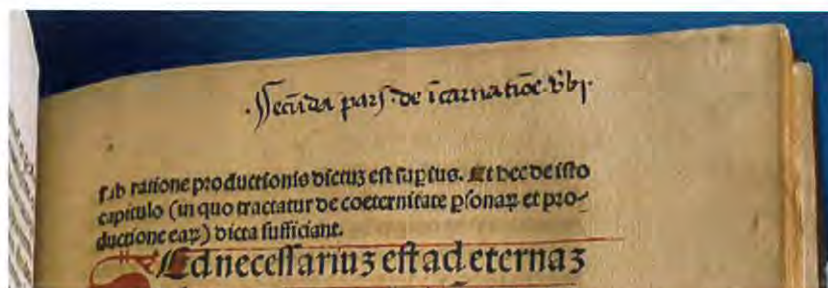 .Secūda parſ. de īcarnatiōe. v̄bj.
ſub ratione productionis dictuꝫ est suꝑius. Et hec de isto
capitulo (in quo tractatur de coeternitate ꝑsonaꝝ et pro⸗
ductione eaꝝ) dicta sufficiant.
Ed necessariuꝫ est ad eternaꝫ